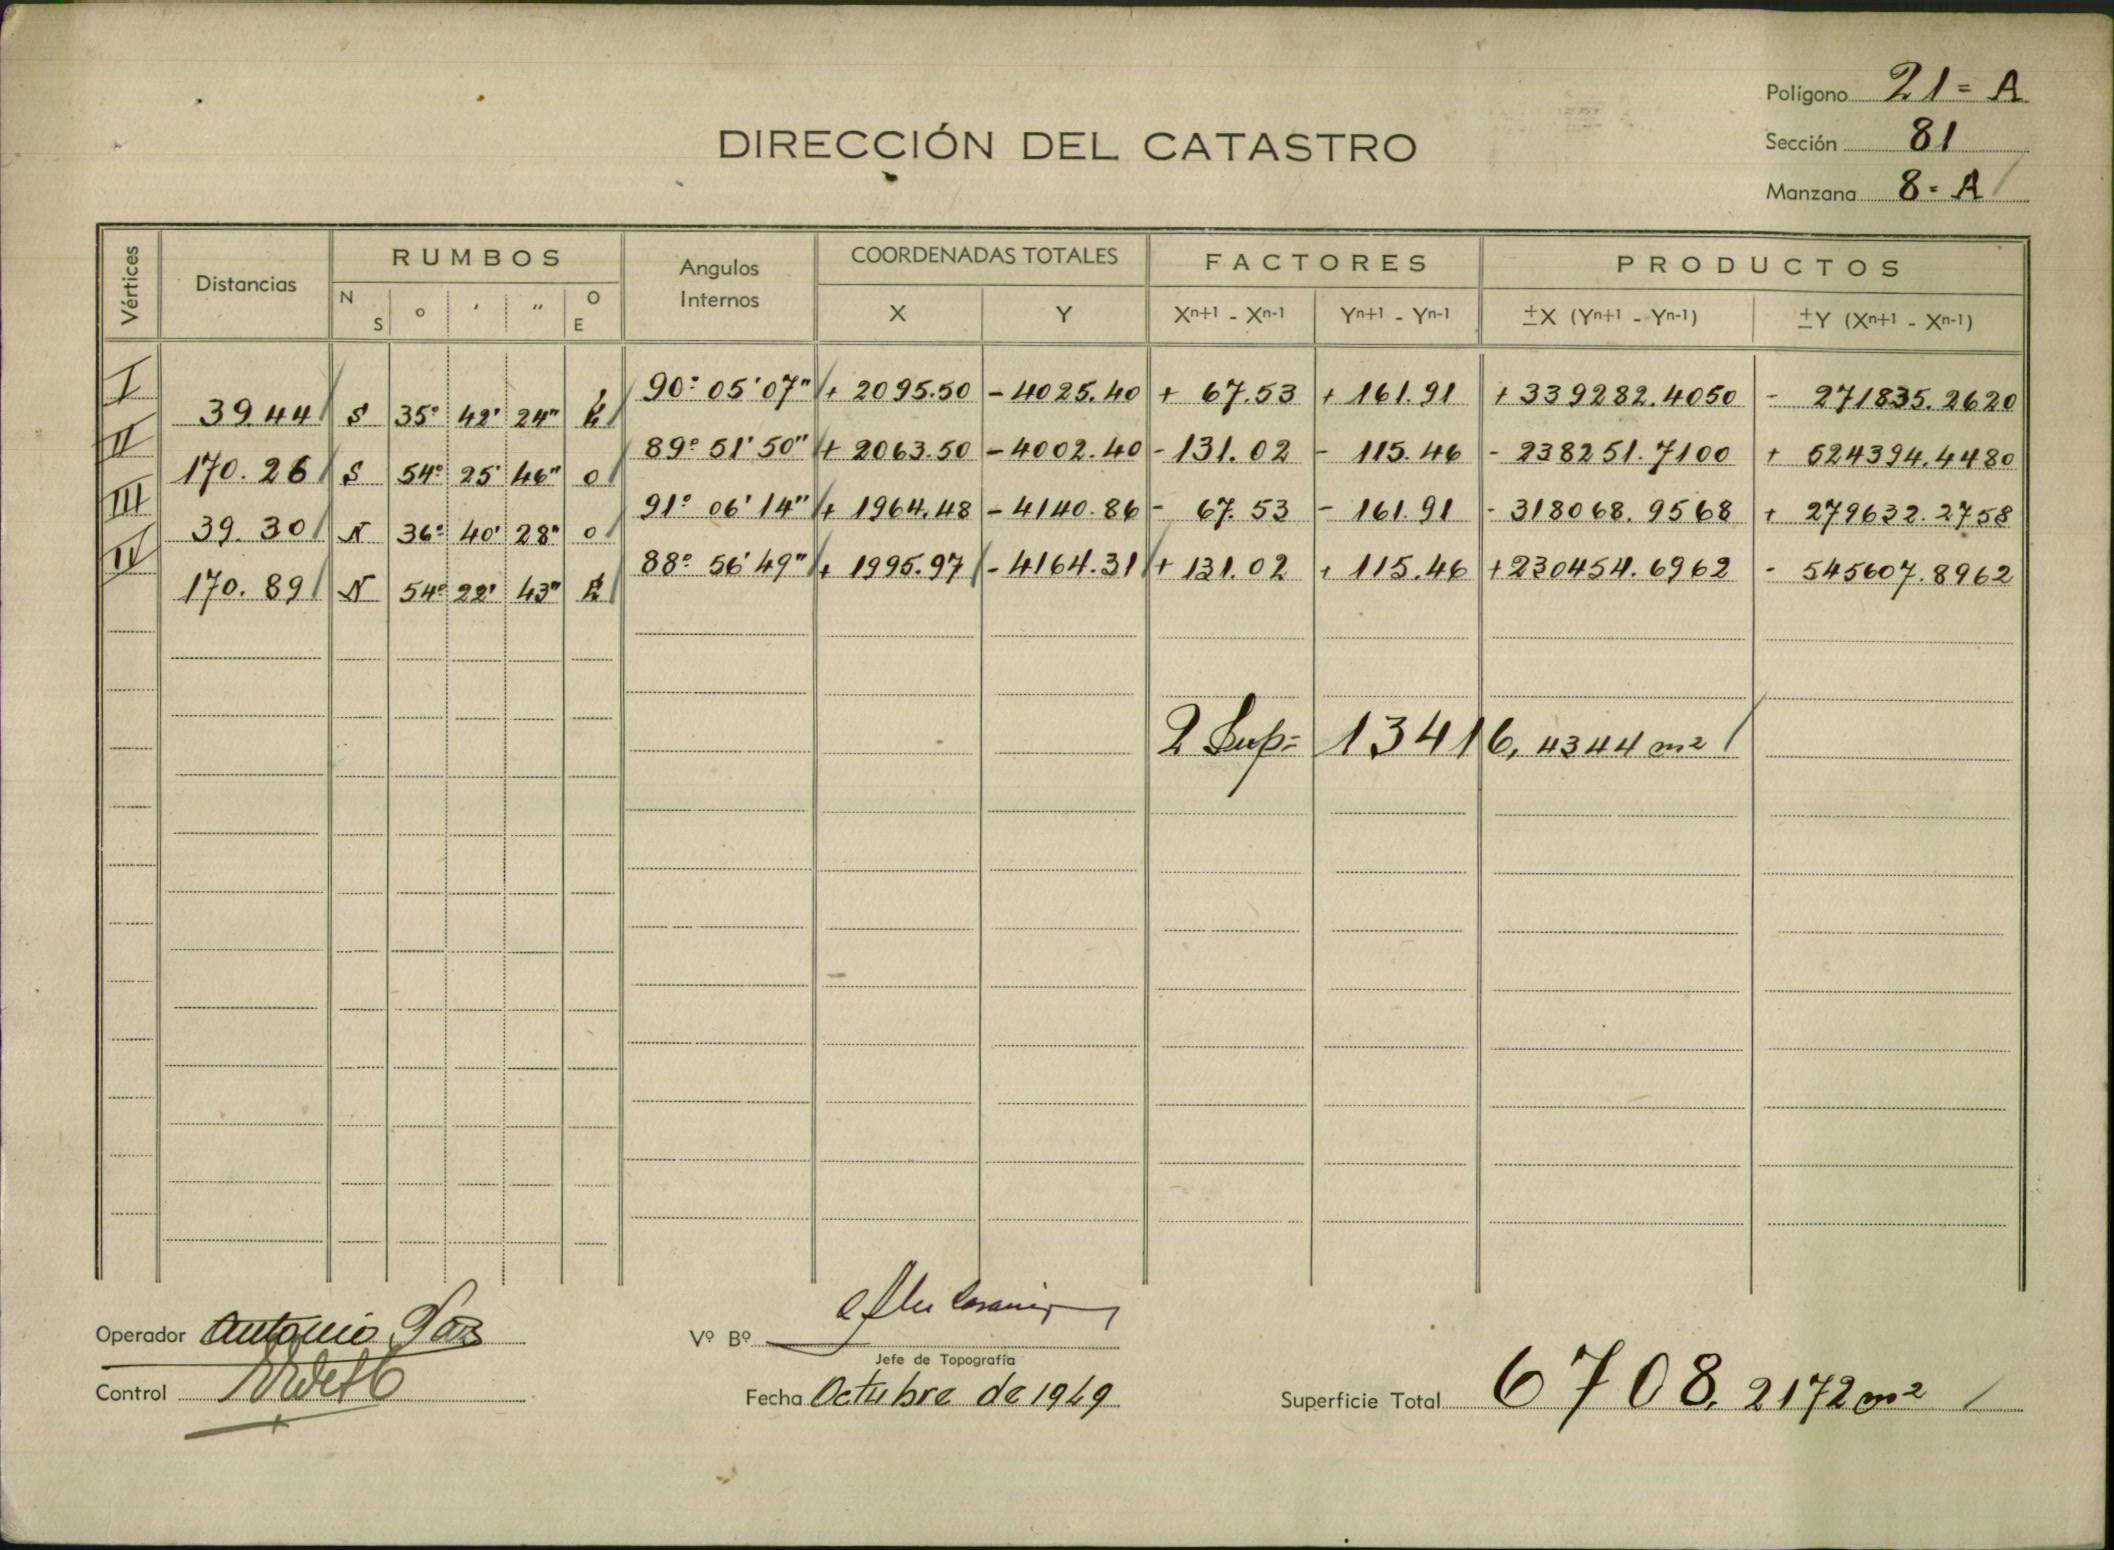 Polígono 21 = A
DIRECCIÓN DEL CATASTRO
Sección 81
Manzana 8 = A
Vértices Distancias RUMBOS Angulos Internos COORDENADAS TOTALES FACTORES PRODUCTOS
N S ° ' " O E X Y Xⁿ⁺¹ - Xⁿ⁻¹ Yⁿ⁺¹ - Yⁿ⁻¹ ±X (Yⁿ⁺¹ - Yⁿ⁻¹) ±Y (Xⁿ⁺¹ - Xⁿ⁻¹)
I 90° 05' 07" + 2095.50 - 4025.40 + 67.53 + 161.91 + 339282.4050 - 271835.2620
39.44 S 35° 42' 24" E
II 89° 51' 50" + 2063.50 - 4002.40 - 131.02 - 115.46 - 238251.7100 + 524394.4480
170.26 S 54° 25' 46" O
III 91° 06' 14" + 1964.48 - 4140.86 - 67.53 - 161.91 - 318068.9568 + 279632.2758
39.30 N 36° 40' 28" O
IV 88° 56' 49" + 1995.97 - 4164.31 + 131.02 + 115.46 + 230454.6962 - 545607.8962
170.89 N 54° 22' 43" E
2 Sup = 13416,4344 m²
Operador Antonio Paz
Vº Bº
Jefe de Topografía
Control
Fecha Octubre de 1949
Superficie Total 6708.2172 m²